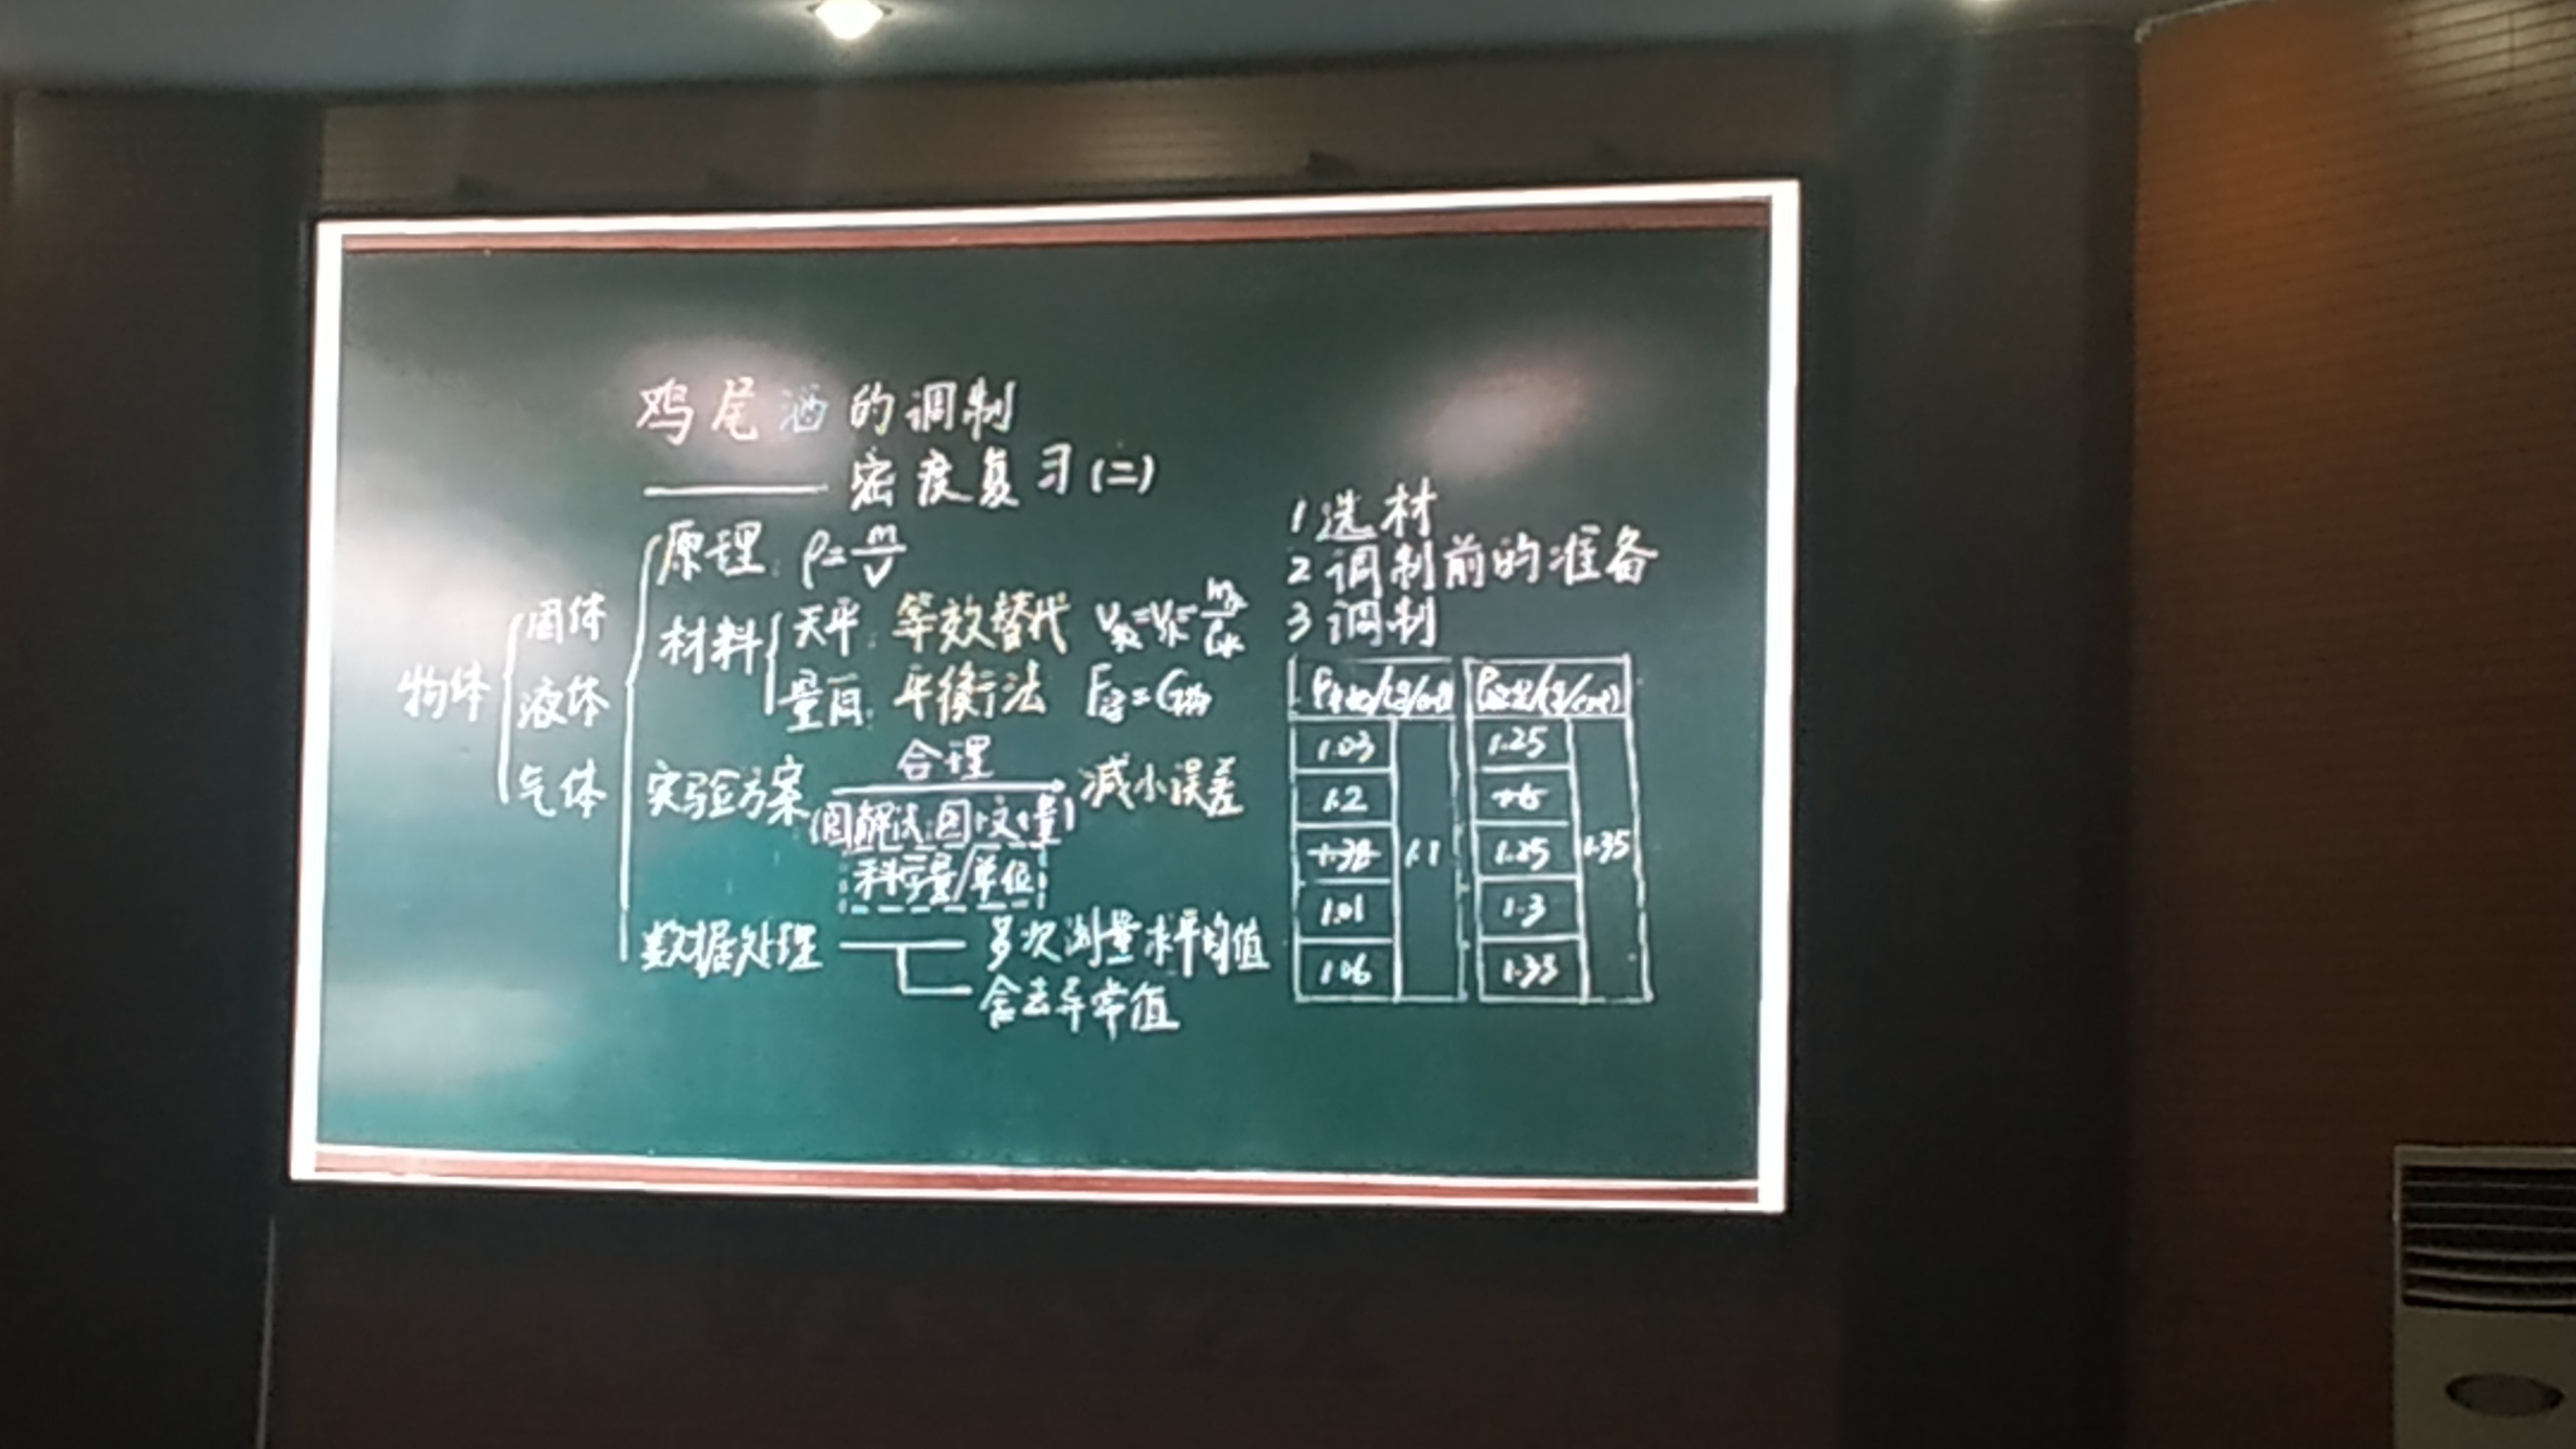 鸡尾酒的调制
—— 密度复习(二)
物体
固体
液体
气体
原理: ρ=m/V
材料
天平: 等效替代
量筒: 平衡法 F浮=G物
实验方案 合理 减小误差
科学量/单位
数据处理 多次测量求平均值
舍去异常值
1 选材
2 调制前的准备
3 调制
1.03
1.2
1.01
1.06
1.1
1.25
1.25
1.3
1.33
1.35